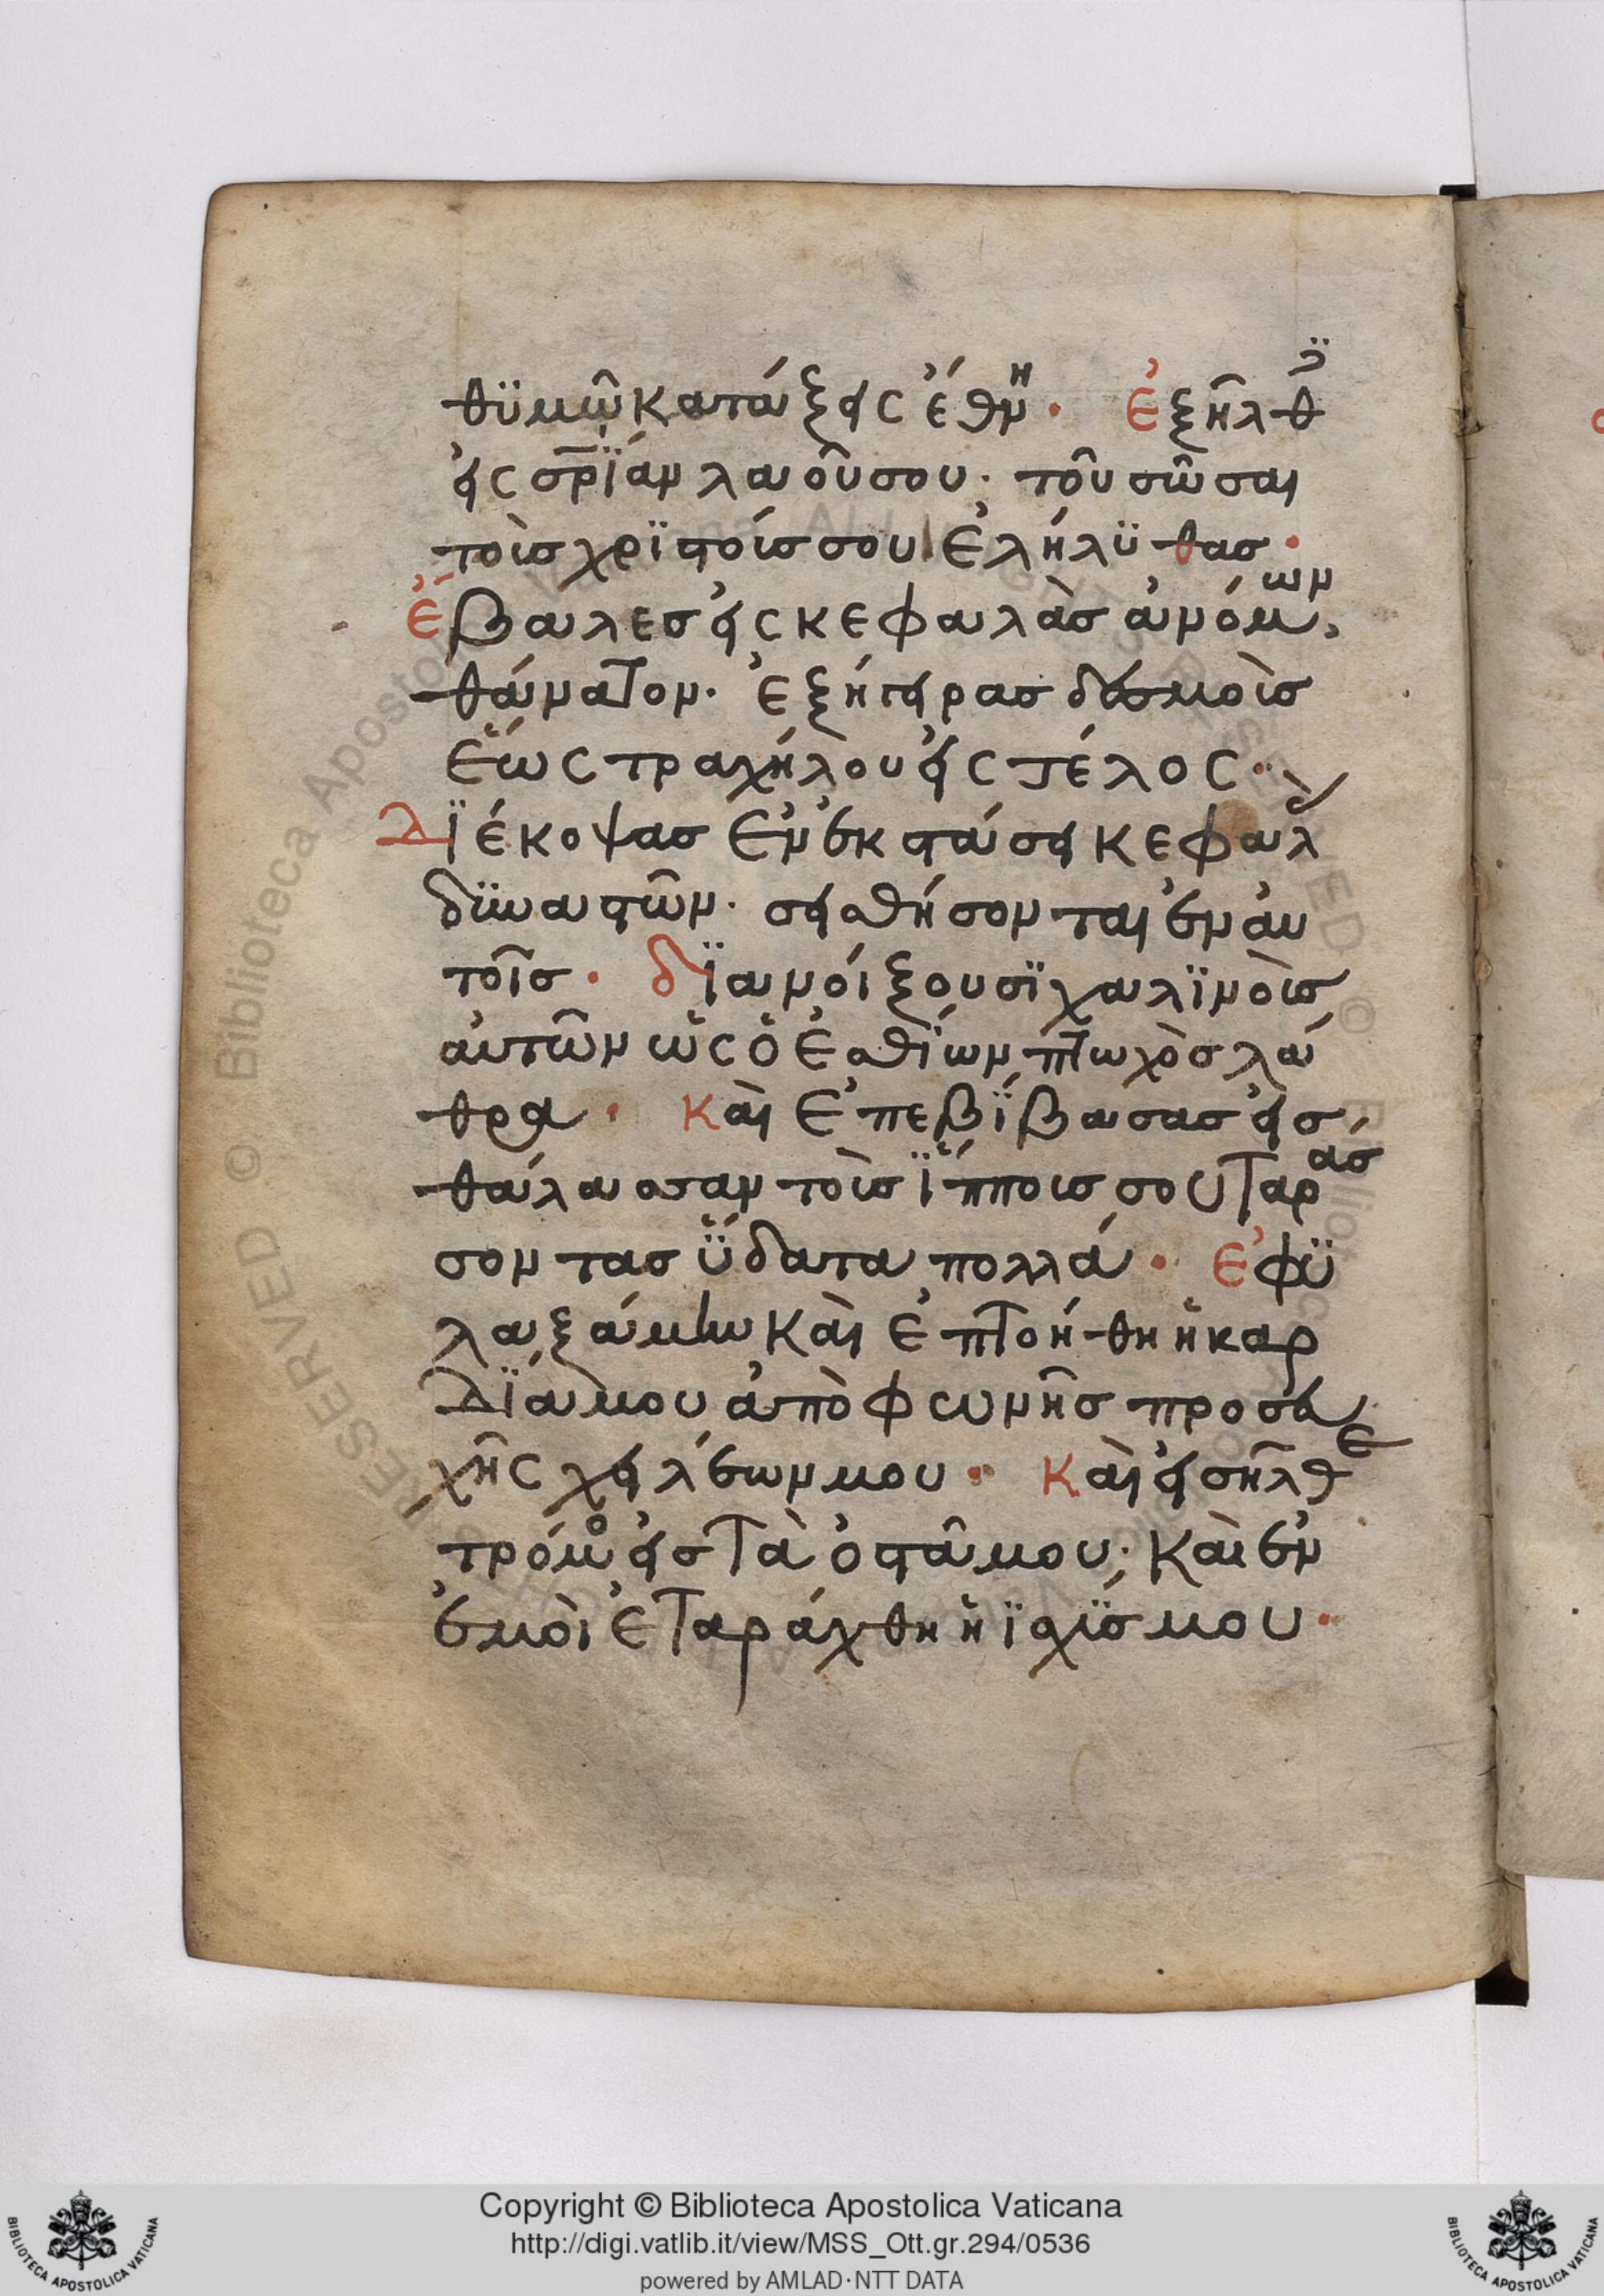 θϋμῶ κατάξεις ἔθνη· Ἐξῆλθες
εἰς σρ̅ΐαν λαοῦ σου· τοῦ σῶσαι
τοὺς χρϊστούς σου Ἐλήλϋθας·
Ἔβαλες εἰς κεφαλὰσ ἀνόμων,
θάνατον· Ἐξήγειρασ δεσμοὺσ
Ἕως τραχήλου εἰς τέλος·
Δϊέκοψασ Ἐν ἐκστάσει κεφαλὰσ
δϋναστῶν· σεισθήσονται ἐν αὐ
τοῖσ· δϊανοίξουσϊ χαλϊνοὺσ
αὐτῶν ὡς ὁ Ἐσθίων πτωχὸσ λά
θρα· Καὶ Ἐπεβΐβασασ εἰσ
θάλασσαν τοὺσ ἵππουσ σου Ταράσ
σοντασ ὕδατα πολλά· Ἐφϋ
λαξάμην καὶ Ἐπτοήθη ἡ καρ
δΐα μου ἀπὸ φωνῆσ προσευ
χῆς χειλέων μου· Καὶ εἰσῆλθε
τρόμοσ εἰσ Τὰ ὀστᾶ μου· Καὶ ἐν
ἐμοὶ ἐταράχθη ἡ ϊσχΰσ μου·
Copyright © Biblioteca Apostolica Vaticana
http://digi.vatlib.it/view/MSS_Ott.gr.294/0536
powered by AMLAD·NTT DATA
BIBLIOTECA APOSTOLICA VATICANA
BIBLIOTECA APOSTOLICA VATICANA